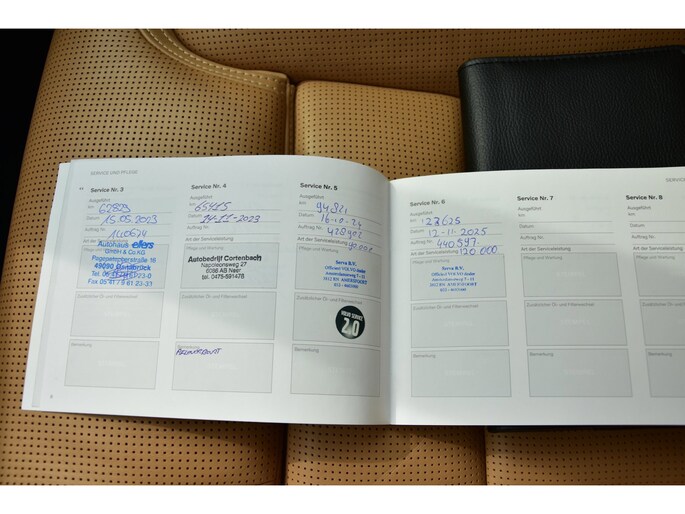 SERVICE UND PFLEGE
Service Nr. 3
Ausgeführt
km
Datum 15.05.2023
Auftrag Nr. 140674
Art der Serviceleistung
Pflege und Wartung
Autohaus elfers
GmbH & Co.KG
Pagenstecherstraße 16
49090 Osnabrück
Fax 05 41 / 9 61 23-31
Zusätzlicher Öl- und Filterwechsel
Bemerkung
Service Nr. 4
Ausgeführt
km 65415
Datum 24-11-2023
Auftrag Nr.
Art der Serviceleistung
Pflege und Wartung
Autobedrijf Cortenbach
Napoleonsweg 27
6086 AB Neer
tel. 0475-591478
Zusätzlicher Öl- und Filterwechsel
Bemerkung
Service Nr. 5
Ausgeführt
km 94821
Datum 16-10-24
Auftrag Nr. 428902
Art der Serviceleistung 90.000
Pflege und Wartung
Serva B.V.
Officieel VOLVO dealer
Zusätzlicher Öl- und Filterwechsel
VOLVO SERVICE
2.0
Bemerkung
Service Nr. 6
Ausgeführt
km 123625
Datum 12-11-2025
Auftrag Nr. 440597
Art der Serviceleistung 120.000
Pflege und Wartung
Serva B.V.
Officieel VOLVO dealer
Zusätzlicher Öl- und Filterwechsel
Bemerkung
Service Nr. 7
Ausgeführt
km
Datum
Auftrag Nr.
Art der Serviceleistung
Pflege und Wartung
Zusätzlicher Öl- und Filterwechsel
Bemerkung
SERVICE
Service Nr. 8
Ausgeführt
km
Datum
Auftrag Nr.
Art der
Pflege und
Zusätzlicher
Bemerkung